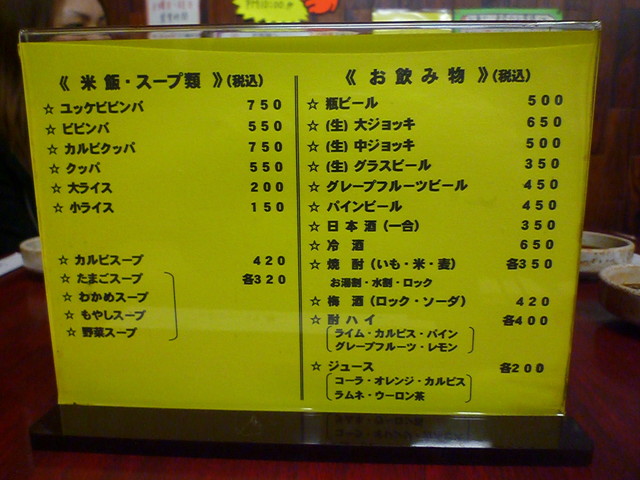 PM10:00
《 米 飯・スープ類 》(税込)
☆ ユッケビビンバ 750
☆ ビビンバ 550
☆ カルビクッパ 750
☆ クッパ 550
☆ 大ライス 200
☆ 小ライス 150
☆ カルビスープ 420
☆ たまごスープ 各320
☆ わかめスープ
☆ もやしスープ
☆ 野菜スープ
《 お 飲 み 物 》(税込)
☆ 瓶ビール 500
☆ (生) 大ジョッキ 650
☆ (生) 中ジョッキ 500
☆ (生) グラスビール 350
☆ グレープフルーツビール 450
☆ パインビール 450
☆ 日 本 酒 (一合) 350
☆ 冷 酒 650
☆ 焼 酎 (いも・米・麦) 各350
お湯割・水割・ロック
☆ 梅 酒 (ロック・ソーダ) 420
☆ 酎 ハ イ 各400
ライム・カルピス・パイン
グレープフルーツ・レモン
☆ ジュース 各200
コーラ・オレンジ・カルピス
ラムネ・ウーロン茶